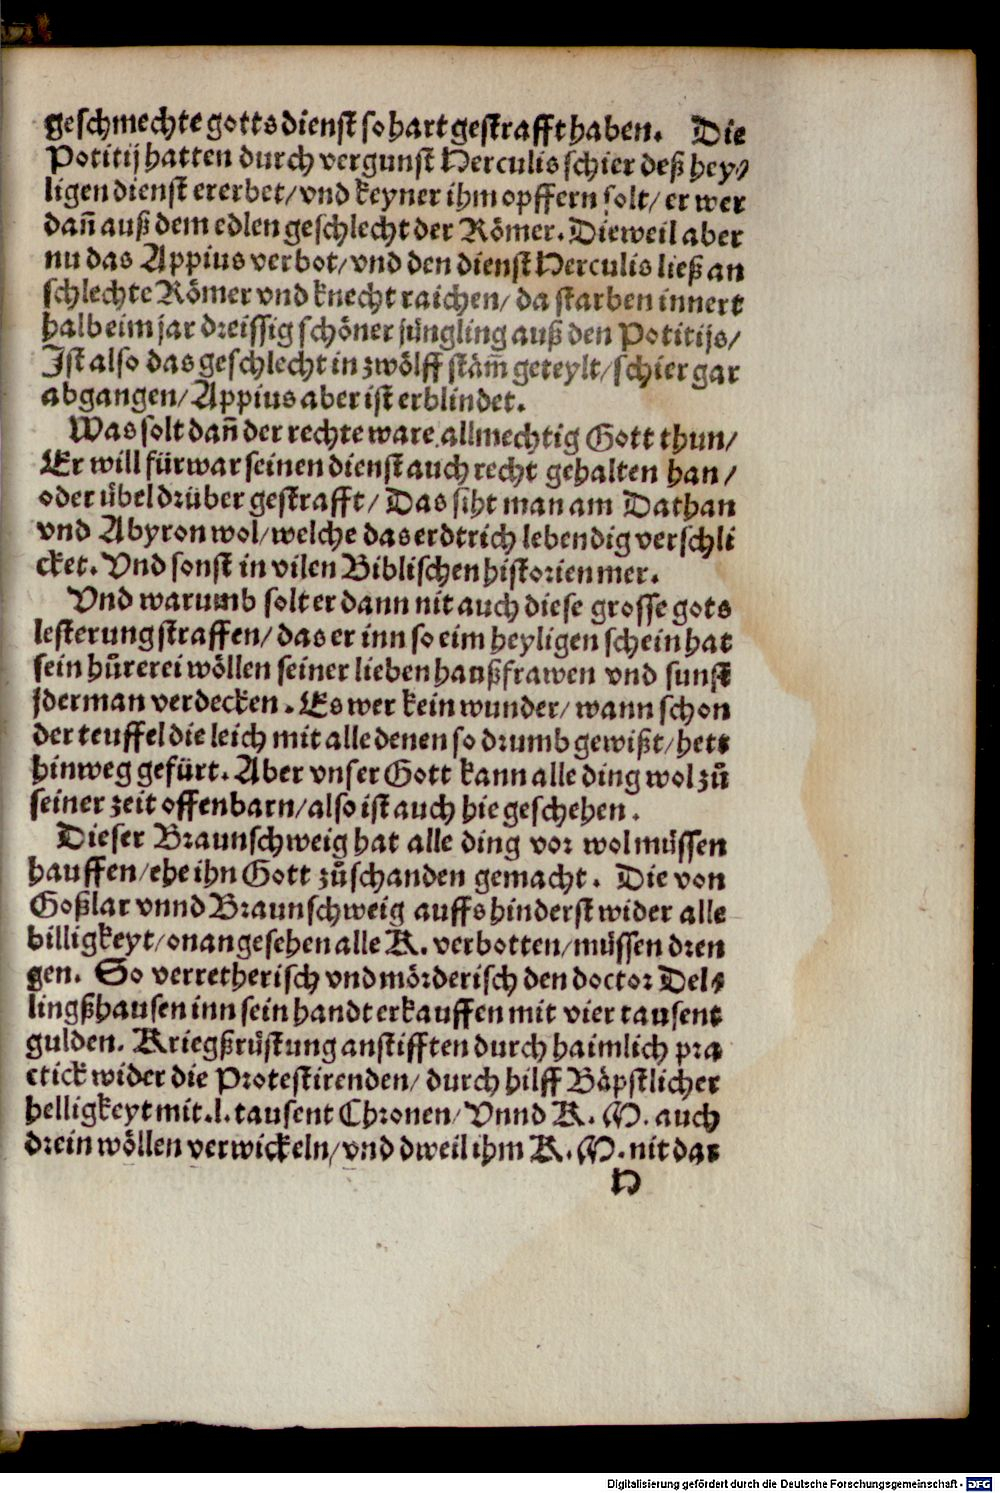 geschmechte gotts dienst so hart gestrafft haben. Die
Potitij hatten durch vergunst Herculis schier deß hey⸗
ligen dienst ererbet/ vnd keyner ihm opffern solt/ er wer
dañ auß dem edlen geschlecht der Römer. Dieweil aber
nu das Appius verbot/ vnd den dienst Herculis ließ an
schlechte Römer vnd knecht raichen/ da starben innert
halb eim jar dreissig schöner jüngling auß den Potitijs/
Ist also das geschlecht in zwölff stäm̃ geteylt/ schier gar
abgangen/ Appius aber ist erblindet.
Was solt dañ der rechte ware allmechtig Gott thun/
Er will fürwar seinen dienst auch recht gehalten han/
oder übel drüber gestrafft/ Das siht man am Dathan
vnd Abyron wol/ welche das erdtrich lebendig verschli
cket. Vnd sonst in vilen Biblischen historien mer.
Vnd warumb solt er dann nit auch diese grosse gots
lesterung straffen/ das er inn so eim heyligen schein hat
sein hůrerei wöllen seiner lieben haußfrawen vnd sunst
jderman verdecken. Es wer kein wunder/ wann schon
der teuffel die leich mit alle denen so drumb gewißt/ hett
hinweg gefürt. Aber vnser Gott kann alle ding wol zů
seiner zeit offenbarn/ also ist auch hie geschehen.
Dieser Braunschweig hat alle ding vor wol müssen
hauffen/ ehe ihn Gott zů schanden gemacht. Die von
Goßlar vnnd Braunschweig auffs hinderst wider alle
billigkeyt/ onangesehen alle K. verbotten/ müssen dren
gen. So verretherisch vnd mörderisch den doctor Del⸗
lingßhausen inn sein handt erkauffen mit vier tausent
gulden. Kriegßrüstung anstifften durch haimlich pra
ctick wider die Protestirenden/ durch hilff Bäpstlicher
helligkeyt mit .l. tausent Chronen/ Vnnd K. M. auch
drein wöllen verwickeln/ vnd dweil ihm K. M. nit das
H
Digitalisierung gefördert durch die Deutsche Forschungsgemeinschaft - DFG